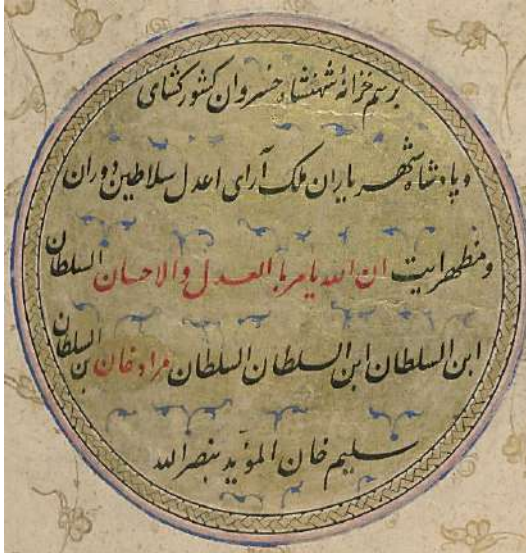 برسم خزانهٔ شهنشاه خسروان کشورکشای
و پادشاه شهریاران ملک آرای اعدل سلاطین دوران
و مظهر ایت ان الله یامر بالعدل والاحسان السلطان
ابن السلطان ابن السلطان السلطان مراد خان بن السلطان
سلیم خان المؤید بنصر الله